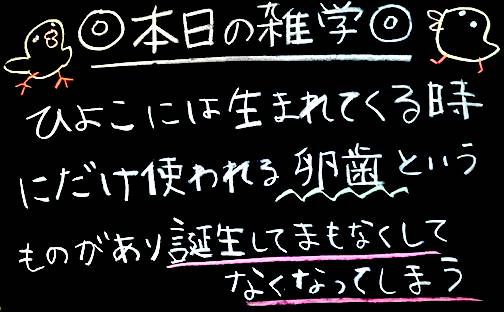 ◎本日の雑学◎
ひよこには生まれてくる時
にだけ使われる卵歯という
ものがあり誕生してまもなくして
なくなってしまう